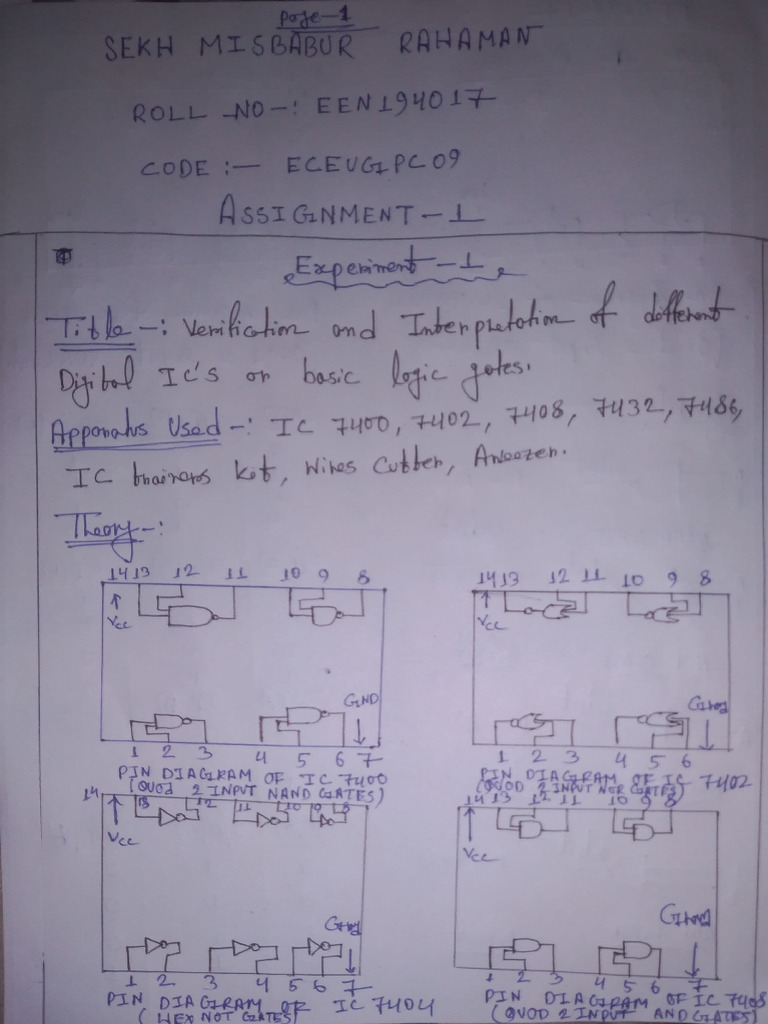 Page-1
SEKH MISBABUR RAHAMAN
ROLL NO-: EEN194017
CODE :- ECEUGPC09
ASSIGNMENT-1
Experiment-1
Title-: Verification and Interpretation of different
Digital IC's or basic logic gates.
Apparatus Used-: IC 7400, 7402, 7408, 7432, 7486,
IC trainers kit, Wires Cutter,
Theory-:
14 13 12 11 10 9 8
Vcc
GND
1 2 3 4 5 6 7
PIN DIAGRAM OF IC 7400
(QUOD 2 INPUT NAND GATES)
14 13 12 11 10 9 8
Vcc
Gnd
1 2 3 4 5 6
PIN DIAGRAM OF IC 7402
(QUOD 2 INPUT NOR GATES)
14 13 12 11 10 9 8
Vcc
Gnd
1 2 3 4 5 6 7
PIN DIAGRAM OF IC 7404
(HEX NOT GATES)
14 13 12 11 10 9 8
Vcc
Gnd
1 2 3 4 5 6 7
PIN DIAGRAM OF IC 7408
(QUOD 2 INPUT AND GATES)